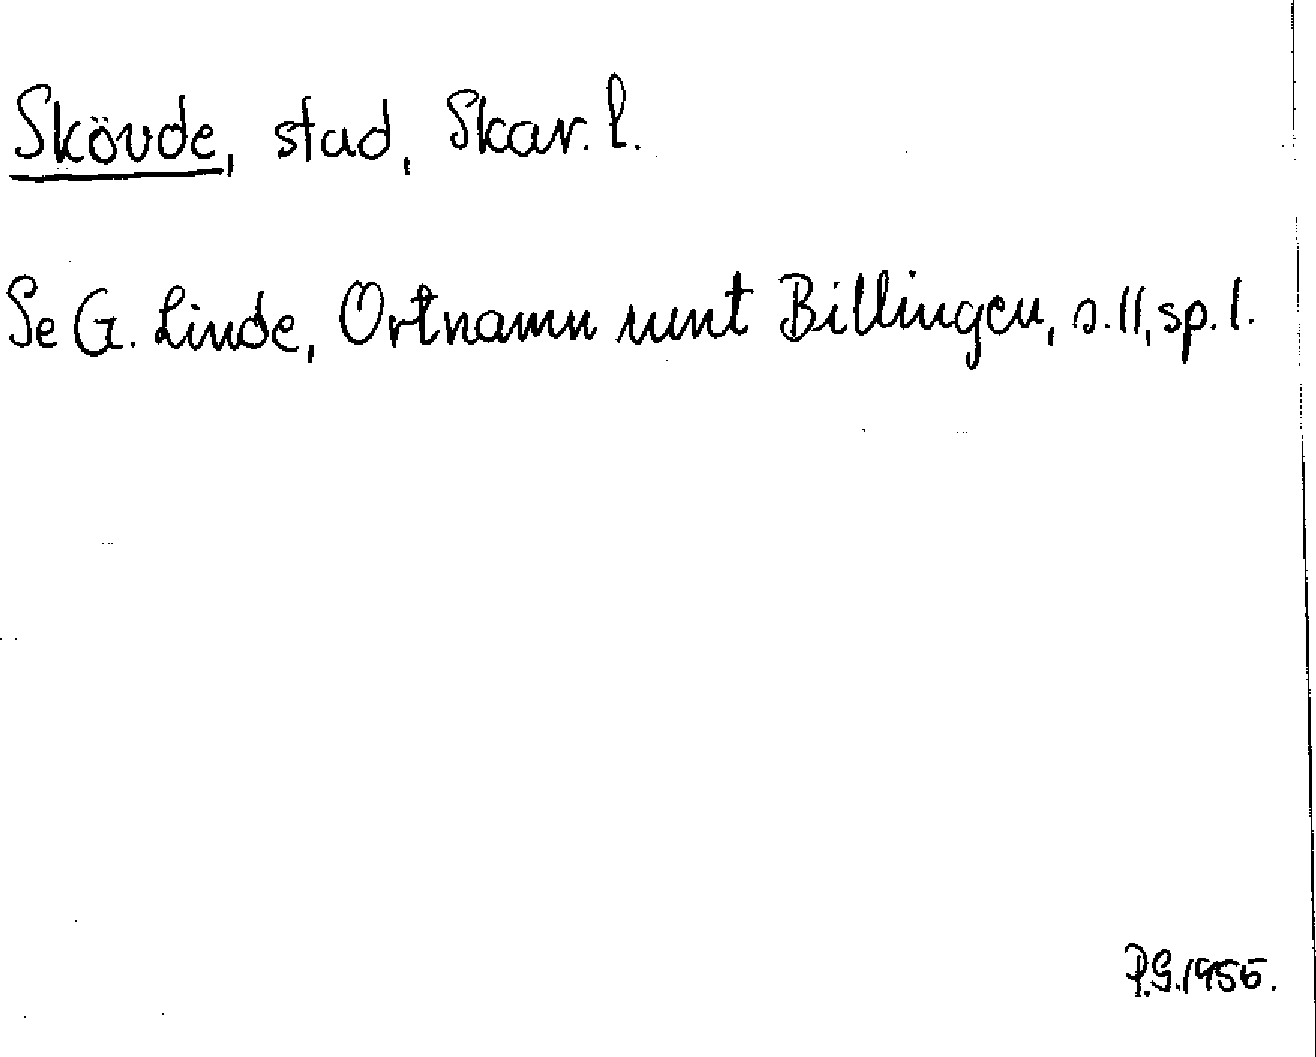 Skövde, stad, Skar. l.
Se G. Linde, Ortnamn runt Billingen, s. 11, sp. 1.
P.G. 1955.